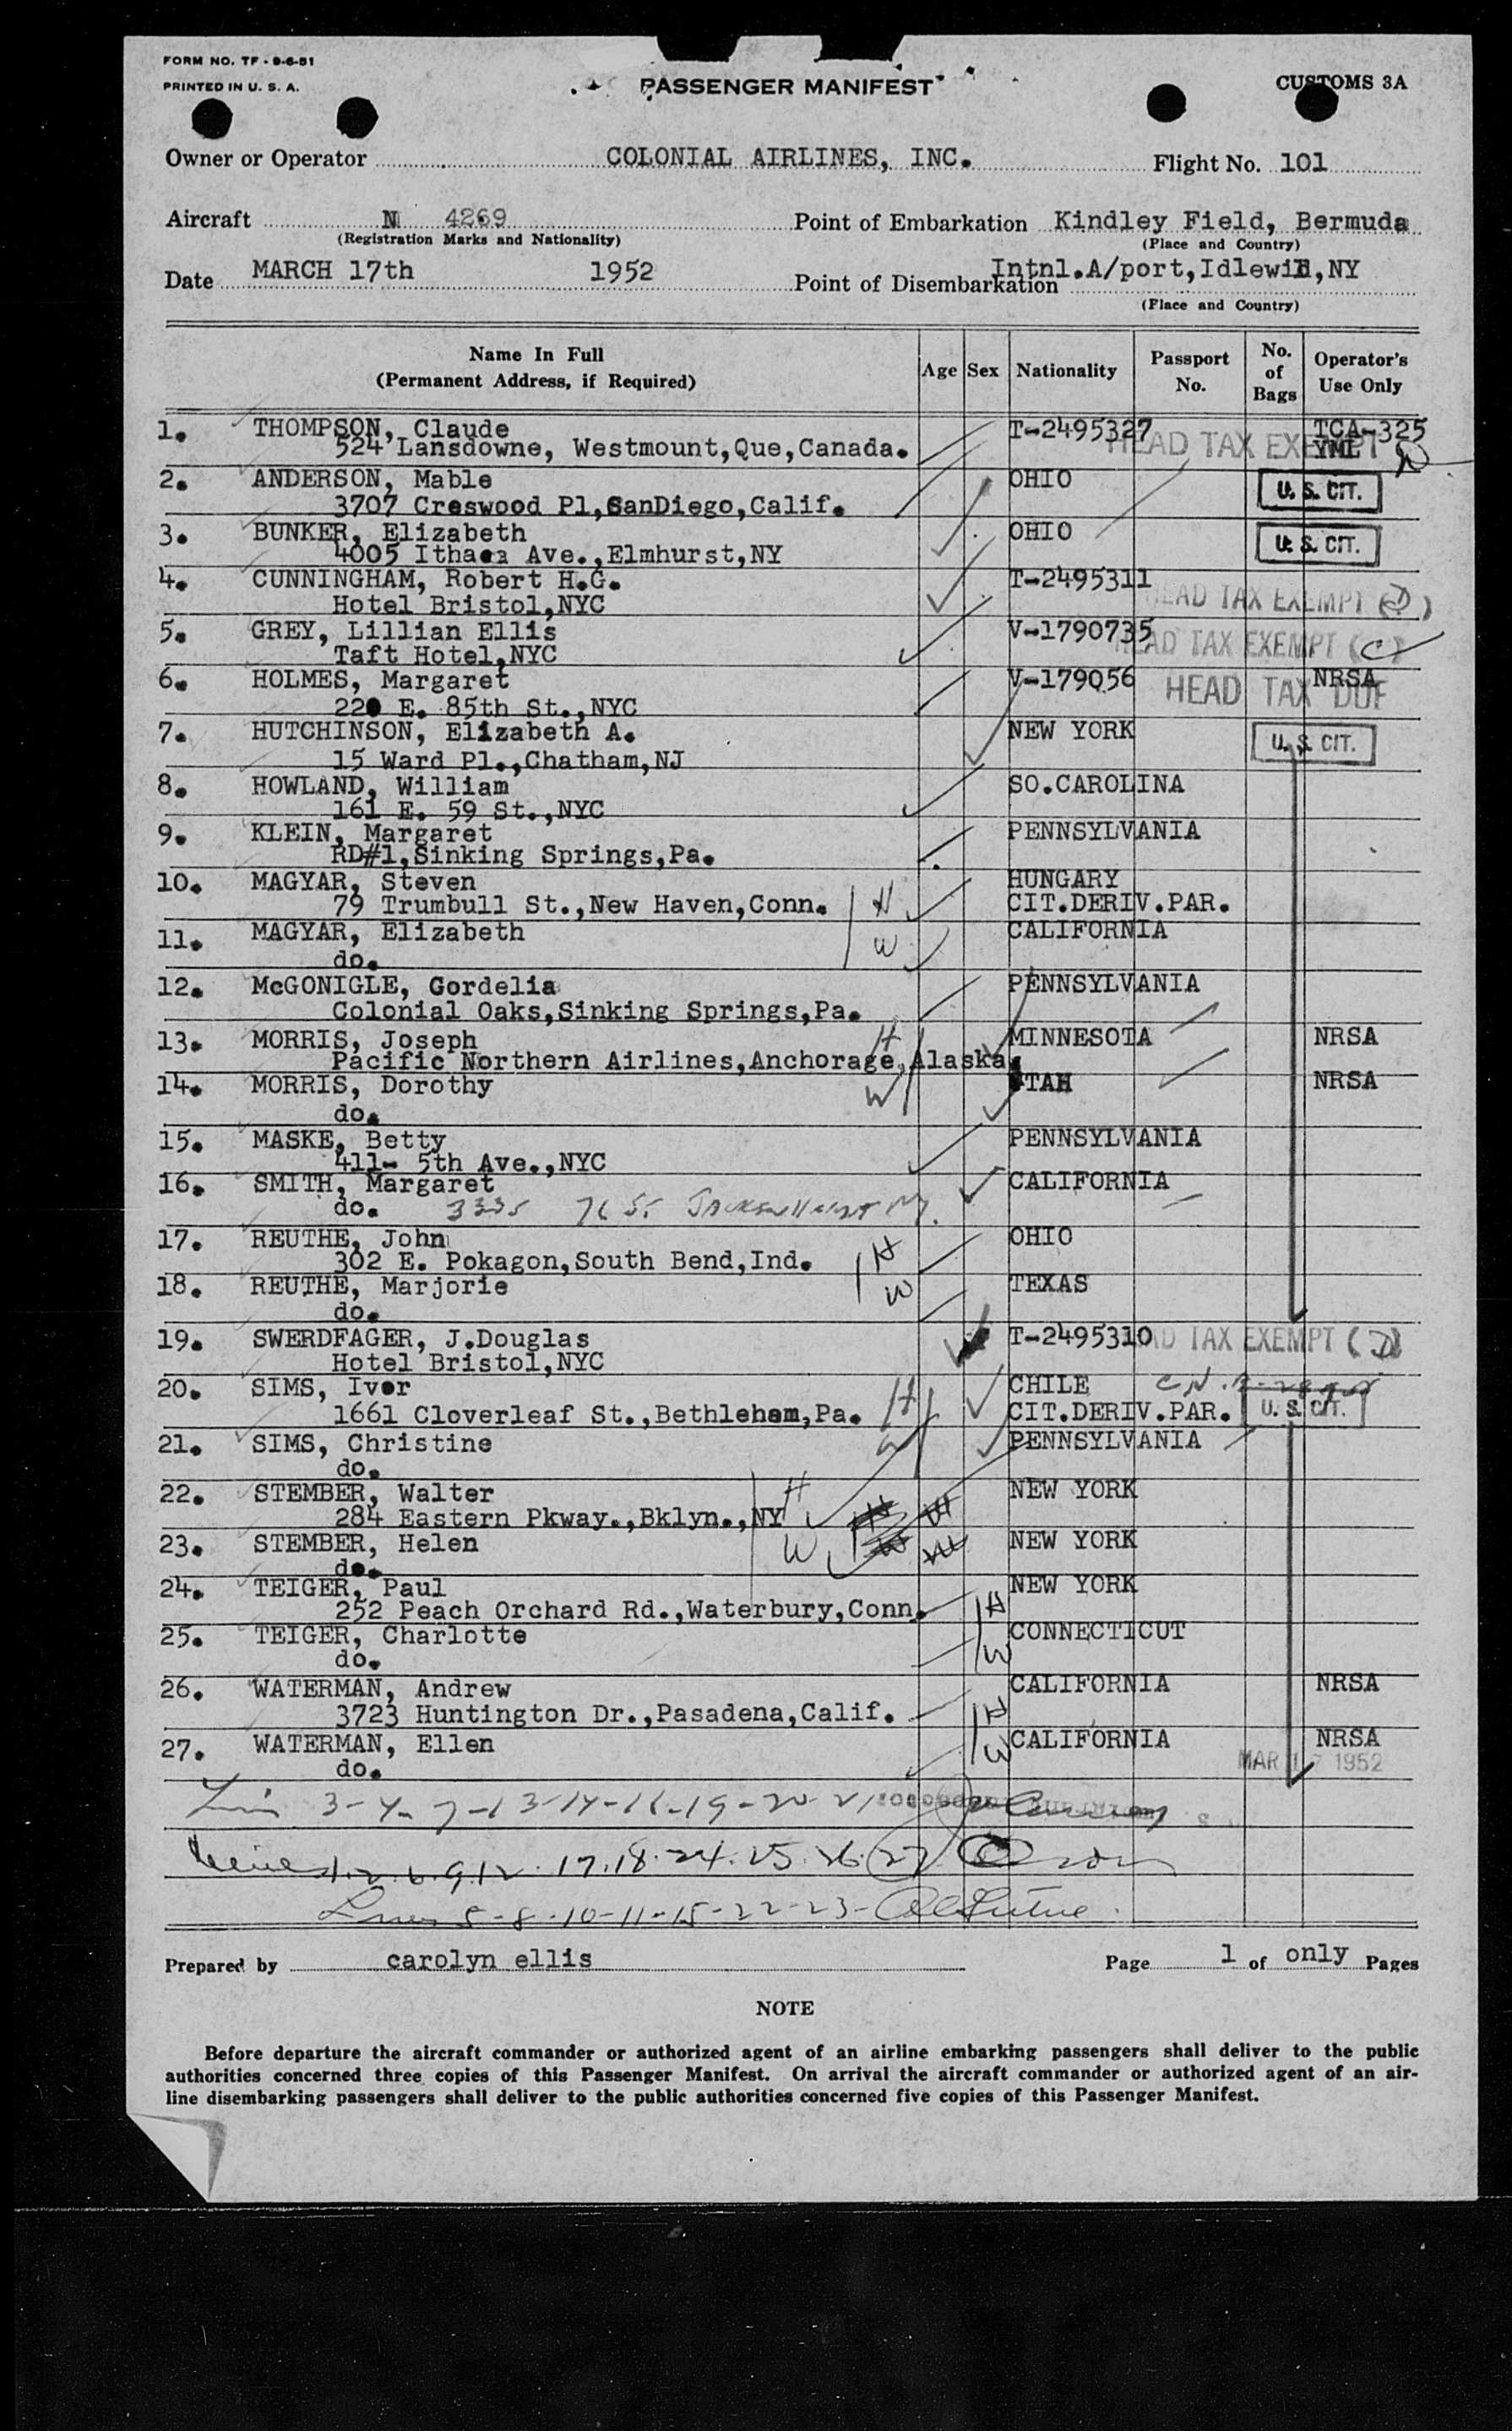 FORM NO. TF - 9-6-51
PRINTED IN U. S. A.
PASSENGER MANIFEST
CUSTOMS 3A
Owner or Operator COLONIAL AIRLINES, INC. Flight No. 101
Aircraft N 4269 Point of Embarkation Kindley Field, Bermuda
(Registration Marks and Nationality) (Place and Country)
Date MARCH 17th 1952 Point of Disembarkation Intnl.A/port,Idlewild,NY
(Place and Country)
Name In Full (Permanent Address, if Required) Age Sex Nationality Passport No. No. of Bags Operator's Use Only
1. THOMPSON, Claude T-2495327 TCA-325
524 Lansdowne, Westmount,Que,Canada. HEAD TAX EXEMPT YML
2. ANDERSON, Mable OHIO U. S. CIT.
3707 Creswood Pl,SanDiego,Calif.
3. BUNKER, Elizabeth OHIO U. S. CIT.
4005 Ithaca Ave.,Elmhurst,NY
4. CUNNINGHAM, Robert H.G. T-2495311
Hotel Bristol,NYC HEAD TAX EXEMPT (D)
5. GREY, Lillian Ellis V-1790735
Taft Hotel,NYC HEAD TAX EXEMPT (C)
6. HOLMES, Margaret V-179056 NRSA
220 E. 85th St.,NYC HEAD TAX DUE
7. HUTCHINSON, Elizabeth A. NEW YORK U. S. CIT.
15 Ward Pl.,Chatham,NJ
8. HOWLAND, William SO.CAROLINA
161 E. 59 St.,NYC
9. KLEIN, Margaret PENNSYLVANIA
RD#1,Sinking Springs,Pa.
10. MAGYAR, Steven HUNGARY
79 Trumbull St.,New Haven,Conn. H CIT.DERIV.PAR.
11. MAGYAR, Elizabeth W CALIFORNIA
do.
12. McGONIGLE, Cordelia PENNSYLVANIA
Colonial Oaks,Sinking Springs,Pa.
13. MORRIS, Joseph H MINNESOTA NRSA
Pacific Northern Airlines,Anchorage,Alaska.
14. MORRIS, Dorothy W UTAH NRSA
do.
15. MASKE, Betty PENNSYLVANIA
411- 5th Ave.,NYC
16. SMITH, Margaret CALIFORNIA
do. 3335 76 St.
17. REUTHE, John OHIO
302 E. Pokagon,South Bend,Ind. H
18. REUTHE, Marjorie W TEXAS
do.
19. SWERDFAGER, J.Douglas T-2495310 HEAD TAX EXEMPT (D)
Hotel Bristol,NYC
20. SIMS, Ivor CHILE
1661 Cloverleaf St.,Bethlehem,Pa. H CIT.DERIV.PAR. U. S. CIT.
21. SIMS, Christine W PENNSYLVANIA
do.
22. STEMBER, Walter H NEW YORK
284 Eastern Pkway.,Bklyn.,NY
23. STEMBER, Helen W NEW YORK
do.
24. TEIGER, Paul NEW YORK
252 Peach Orchard Rd.,Waterbury,Conn. H
25. TEIGER, Charlotte CONNECTICUT
do. W
26. WATERMAN, Andrew CALIFORNIA NRSA
3723 Huntington Dr.,Pasadena,Calif. H
27. WATERMAN, Ellen W CALIFORNIA NRSA
do. MAR 17 1952
3-4-7-13-14-16-19-20-21
1.2.6.9.12.17.18.24.25.26.27
5-8-10-11-15-22-23-
Prepared by carolyn ellis Page 1 of only Pages
NOTE
Before departure the aircraft commander or authorized agent of an airline embarking passengers shall deliver to the public
authorities concerned three copies of this Passenger Manifest. On arrival the aircraft commander or authorized agent of an air-
line disembarking passengers shall deliver to the public authorities concerned five copies of this Passenger Manifest.